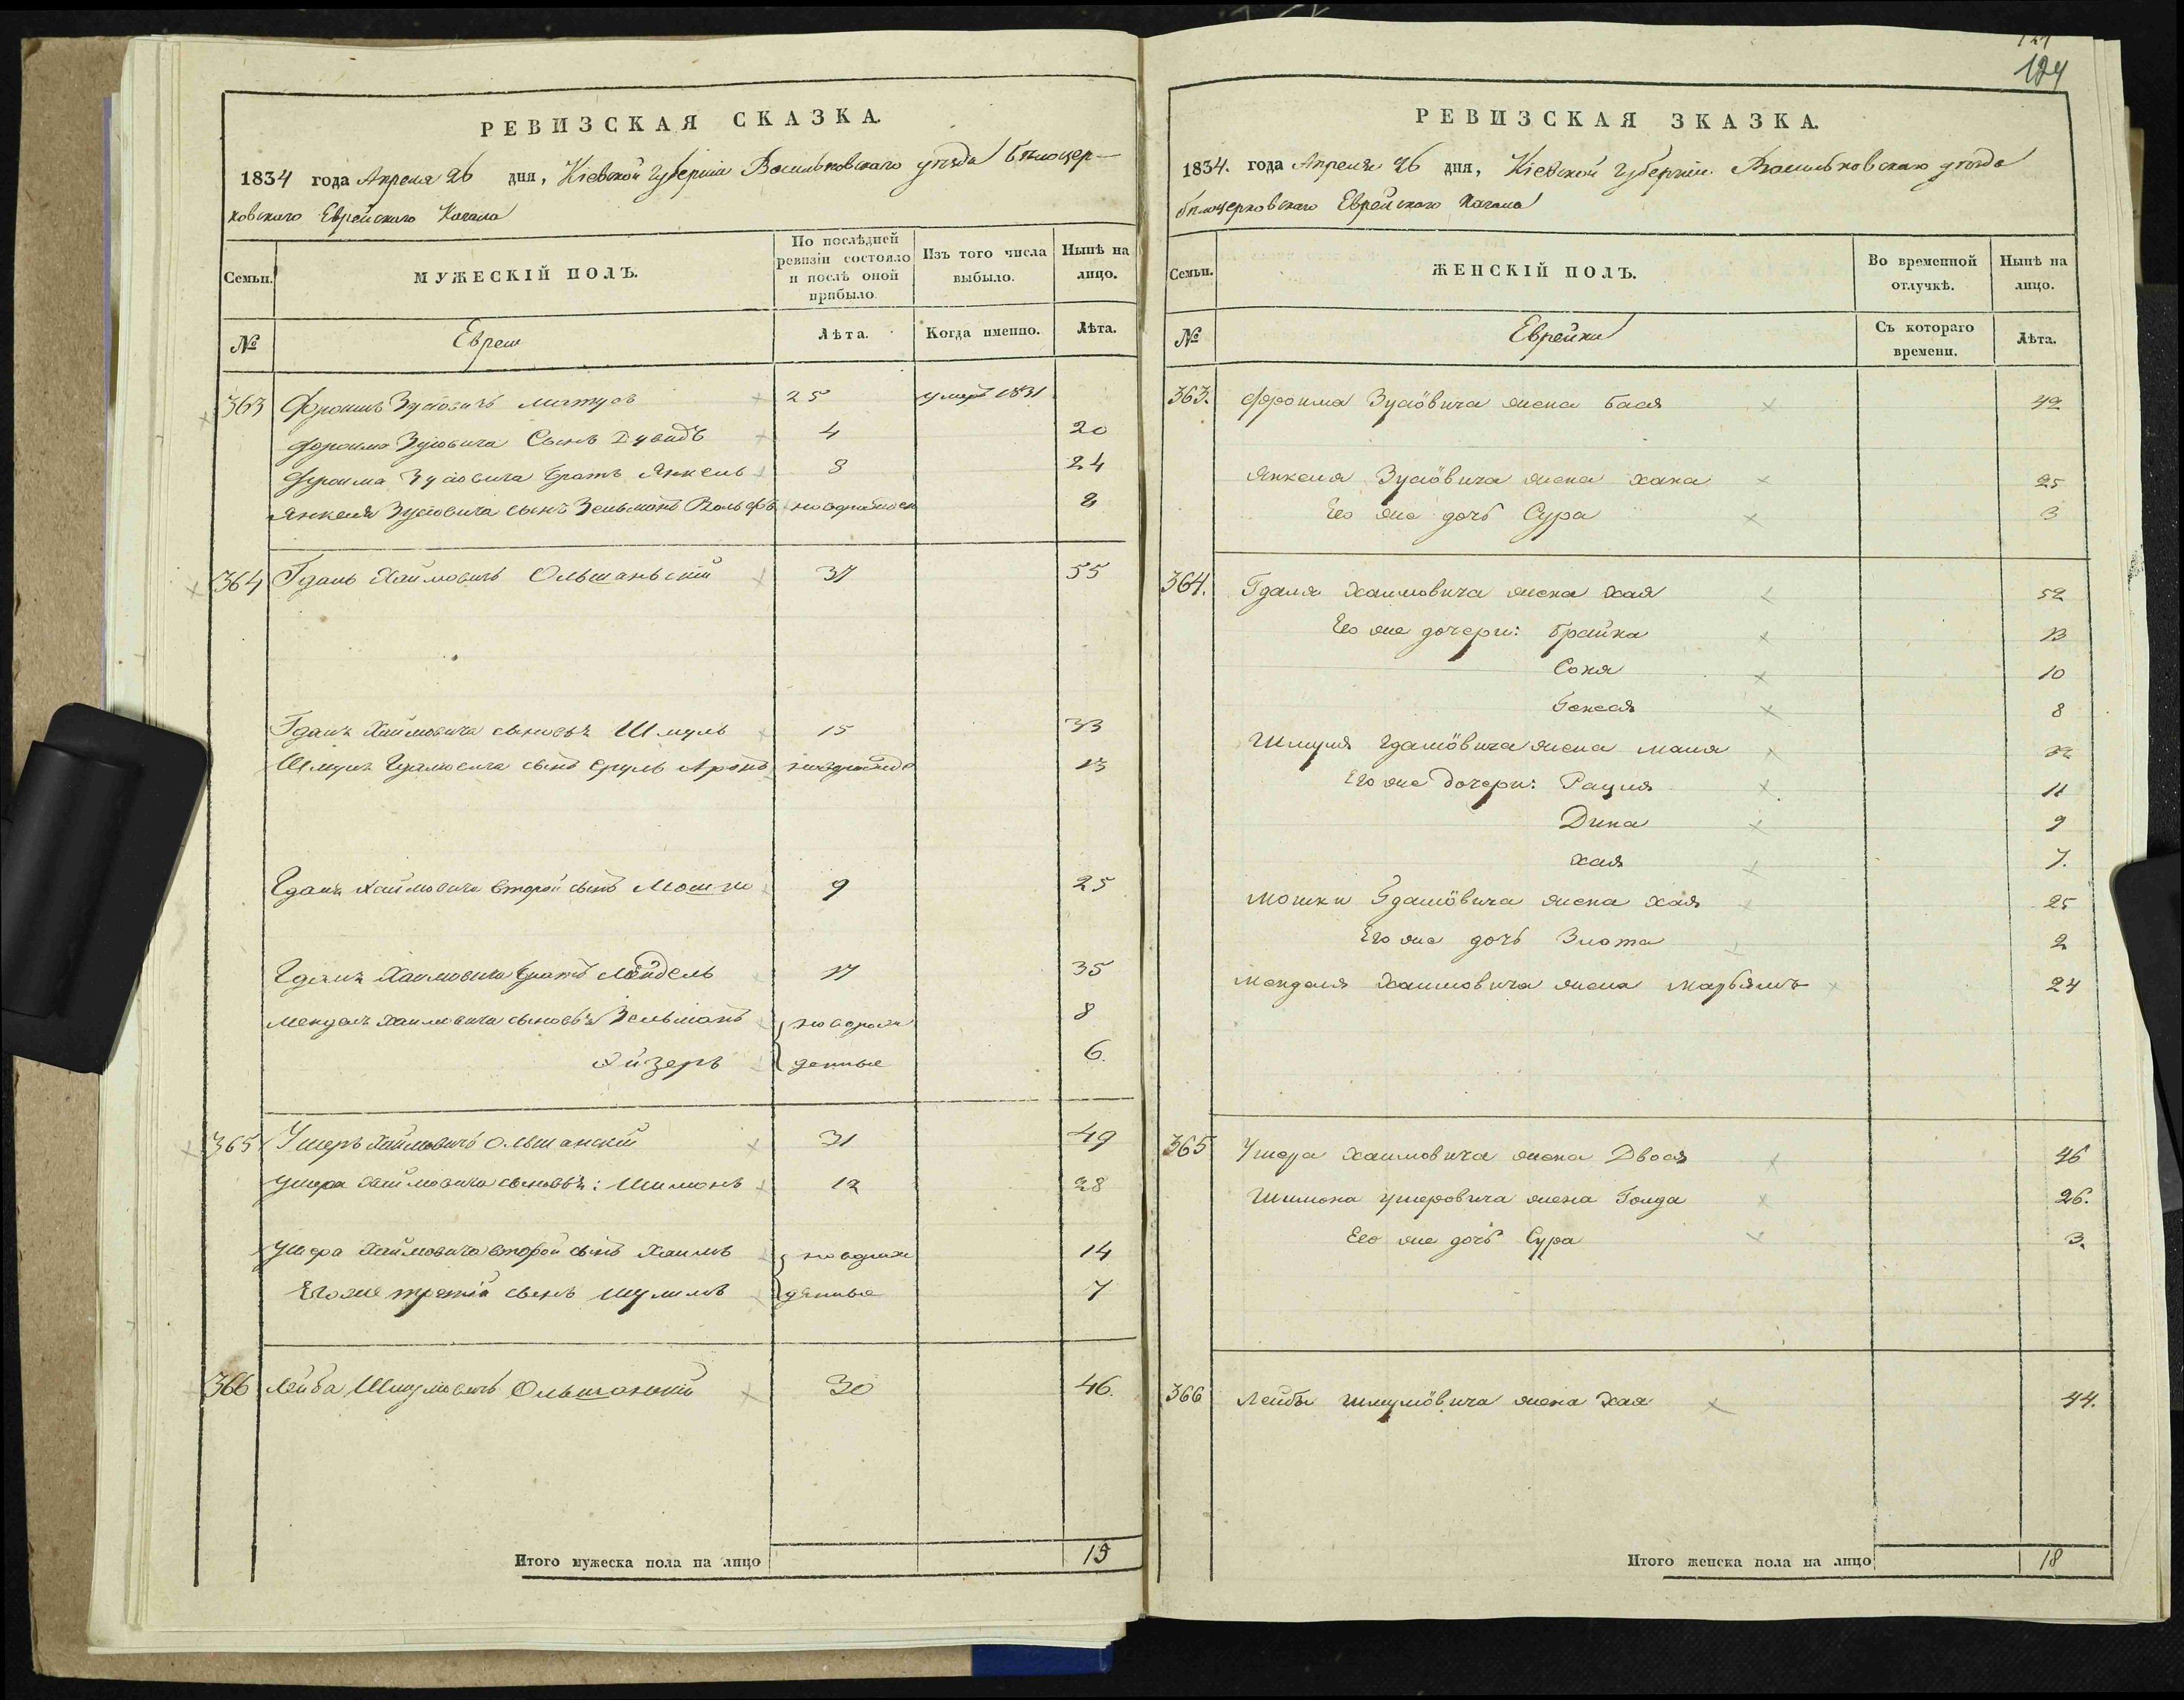 124
РЕВИЗСКАЯ СКАЗКА.
1834 года Апреля 26 дня, Кіевской Губерніи Васильковского уѣзда Бѣлоцер-
ковского Еврейского Кагала
Семьи.
МУЖЕСКІЙ ПОЛЪ.
По послѣдней ревизіи состояло и послѣ оной прибыло.
Изъ того числа выбыло.
Нынѣ на лицо.
№
Евреи
Лѣта.
Когда именно.
Лѣта.
363 Фроимъ Зусіовичъ 25 умеръ 1831
Фроима Зусіовича Сынъ Дувидъ 4 20
Фроима Зусіовича братъ Янкель 8 24
Янкеля Зусіовича сынъ Зельманъ Вольфъ 8
364 Гдаль Хаимовичъ Ольшаньскій 37 55
Гдаля Хаимовича сыновья Шмуль 15 33
Шмуля Гдаліовича сынъ Сруль Аронъ 13
Гдаля Хаимовича второй сынъ Мошко 9 25
Гдаля Хаимовича братъ Мендель 17 35
Менделя Хаимовича сыновья Зельманъ новорож 8
Айзеръ денные 6.
365 Ушеръ Хаимовичъ Ольшанскій 31 49
Ушера Хаимовича сыновья: Шимонъ 12 28
Ушера Хаимовича второй сынъ Хаимъ новорож 14
Его же третій сынъ Шулимъ денные 7
366 Лейба Шмуліовичъ Ольшанскій 30 46.
Итого мужеска пола на лицо 15
РЕВИЗСКАЯ ЗКАЗКА.
1834. года Апреля 26 дня, Кіевской Губерніи Васильковскаго уѣзда
бѣлоцерковскаго Еврейскаго Кагала
Семьи.
ЖЕНСКІЙ ПОЛЪ.
Во временной отлучкѣ.
Нынѣ на лицо.
№
Еврейки
Съ котораго времени.
Лѣта.
363. Фроима Зусіовича жена Бася 42
Янкеля Зусіовича жена Хана 25
Его же дочь Сура 3
364. Гдаля Хаимовича жена Хая 52
Его же дочери: Брайна 13
Соня 10
8
Шмуля Гдаліовича жена Маля
Его же дочери: Рацля 11
Дина 9
Хая 7.
Мошки Гдаліовича жена Хая 25
Его же дочь Злота 2
Менделя Хаимовича жена Марьямъ 24
365 Ушера Хаимовича жена Двося 46
Шимона Ушеровича жена Голда 26.
Его же дочь Сура 3.
366 Лейбы Шмуліовича жена Хая 44.
Итого женска пола на лицо 18